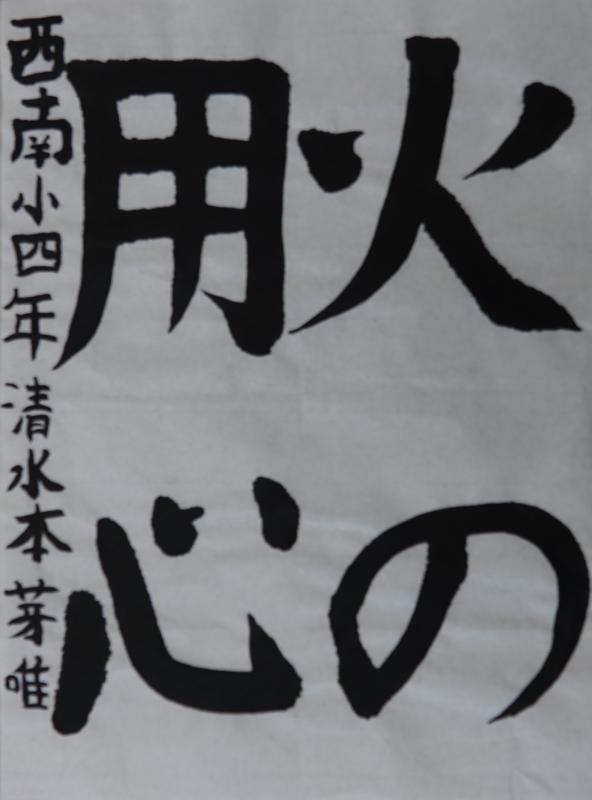 火の
用心
西南小四年清水本芽唯